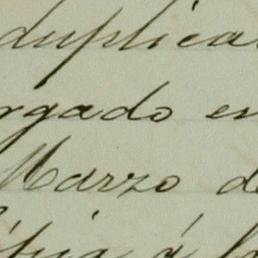 duplica
rgado en
Marzo de
á